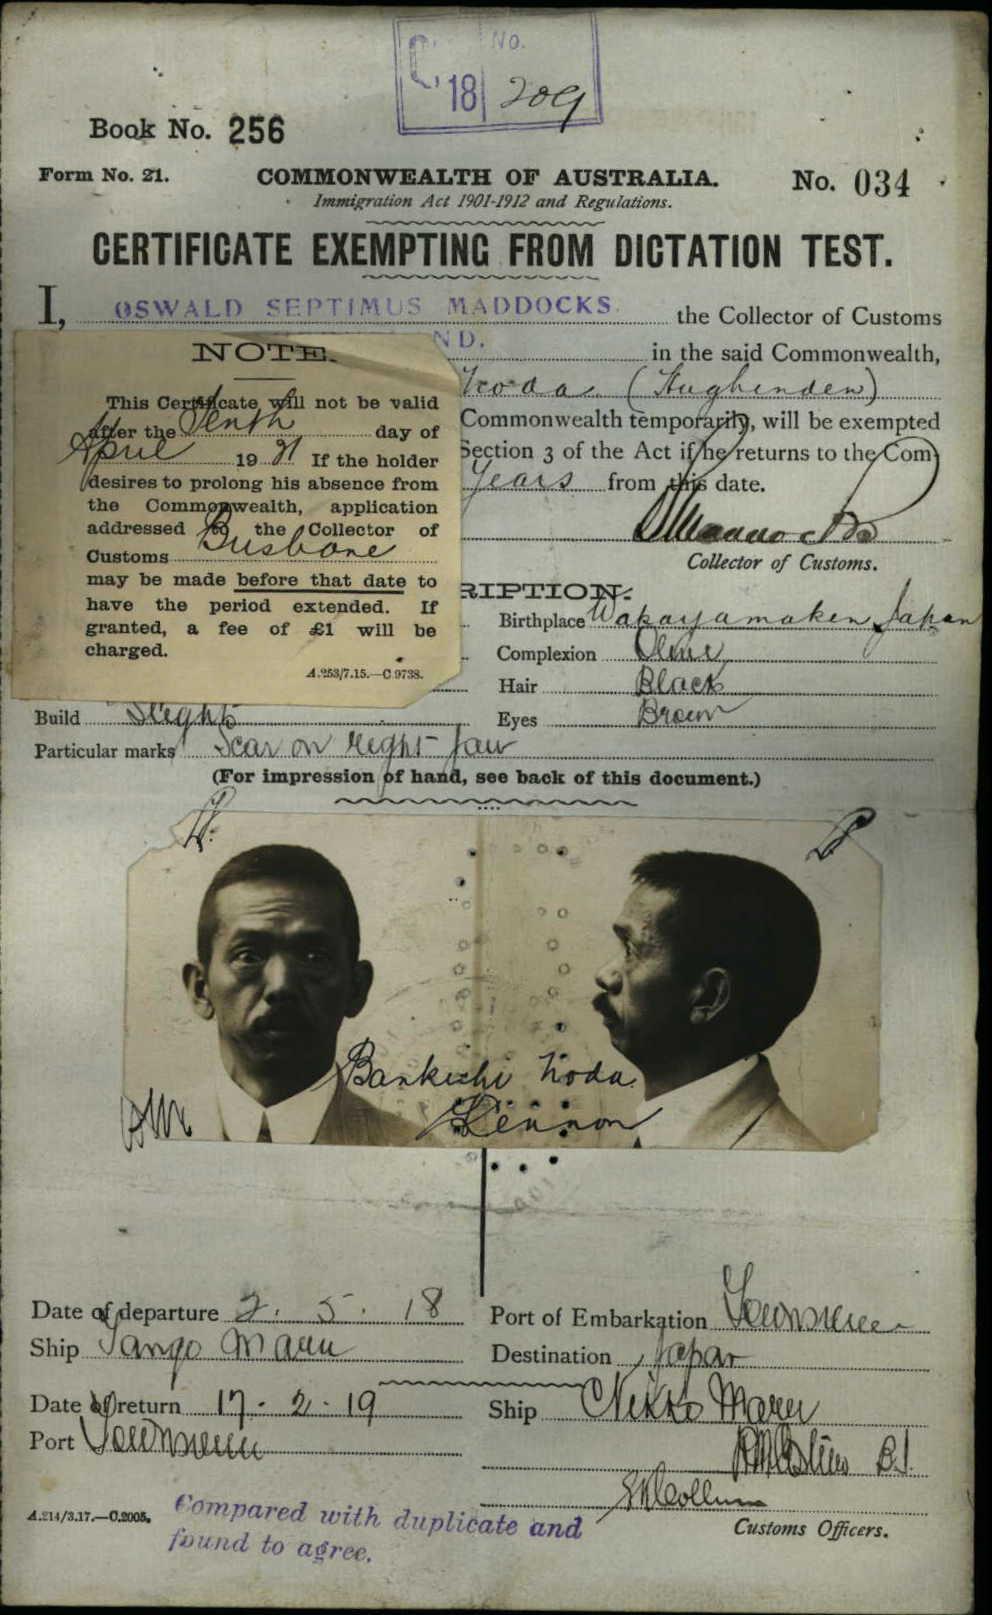 C. No.
18 209
Book No. 256
Form No. 21. COMMONWEALTH OF AUSTRALIA. No. 034
Immigration Act 1901-1912 and Regulations.
CERTIFICATE EXEMPTING FROM DICTATION TEST.
I, OSWALD SEPTIMUS MADDOCKS. the Collector of Customs
ND. in the said Commonwealth,
(Hughenden)
Commonwealth temporarily, will be exempted
Section 3 of the Act if he returns to the Com-
Years from this date.
Collector of Customs.
NOTE.
This Certificate will not be valid
after the Tenth day of
April 1921 If the holder
desires to prolong his absence from
the Commonwealth, application
addressed to the Collector of
Customs Brisbane
may be made before that date to
have the period extended. If
granted, a fee of £1 will be
charged.
A.253/7.15.—C.9738.
RIPTION.
Birthplace Wakayamaken Japan
Complexion Olive
Hair Black
Build Slight Eyes Brown
Particular marks Scar on right jaw
(For impression of hand, see back of this document.)
Bankichi Noda
Date of departure 2. 5. 18 Port of Embarkation Townsville
Ship Tango Maru Destination Japan
Date of return 17-2-19 Ship Nikko Maru
Port Townsville
A.214/3.17.—C.2005. Compared with duplicate and
found to agree.
Customs Officers.